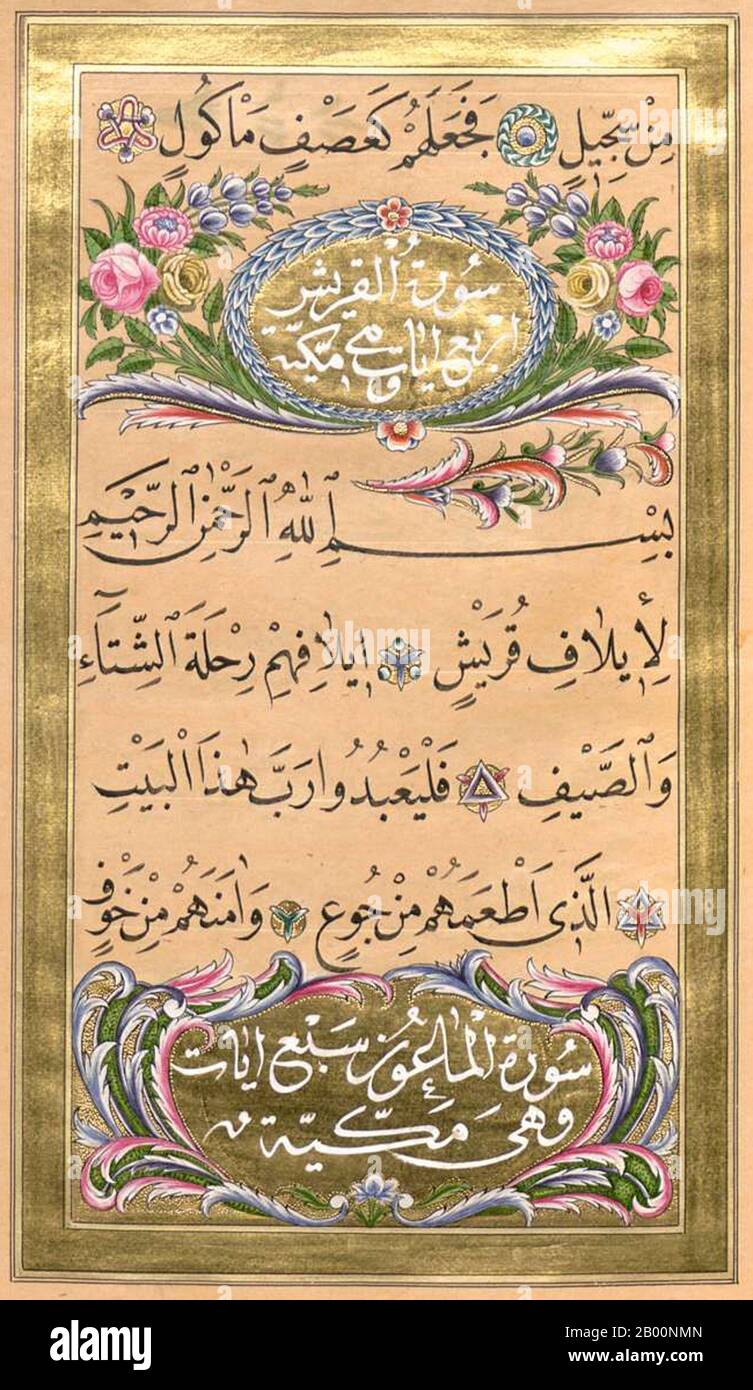 مِنْ سِجّٖيلٍ فَجَعَلَهُمْ كَعَصْفٍ مَأْكُولٍ
سُورَةُ الْقُرَيْشِ
اَرْبَعُ اٰيَاتٍ وَهِيَ مَكِّيَّة
بِسْمِ اللّٰهِ الرَّحْمٰنِ الرَّحٖيمِ
لِأٖيلَافِ قُرَيْشٍ اٖيلَافِهِمْ رِحْلَةَ الشِّتَٓاءِ
وَالصَّيْفِ فَلْيَعْبُدُوا رَبَّ هٰذَا الْبَيْتِ
الَّذٖى اَطْعَمَهُمْ مِنْ جُوعٍ وَاٰمَنَهُمْ مِنْ خَوْفٍ
سُورَةُ الْمَاعُونِ سَبْعُ اٰيَات
وَهِىَ مَكِّيَّة
alamy
Image ID: 2B00NMN
www.alamy.com